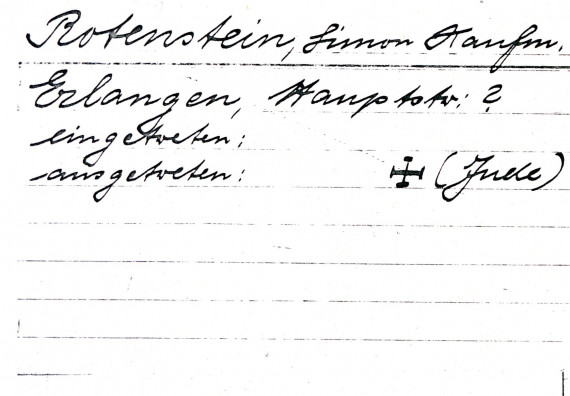 Rotenstein, Simon Kaufm.
Erlangen, Hauptstr: ?
eingetreten:
ausgetreten: ✠ (Jude)